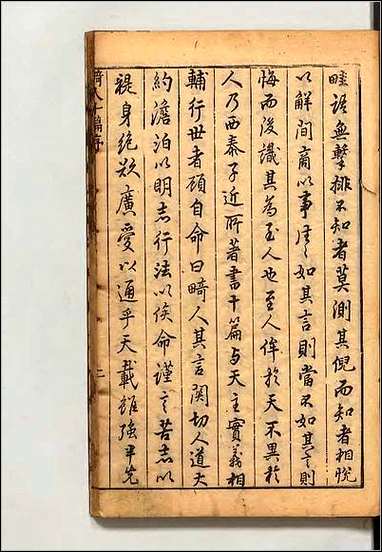 畦語無擊排不知者莫測其倪而知者相悅
以解間商以事往〻如其言則當不如其言則
悔而後識其為至人也至人侔於天不異於
人乃西泰子近所著書十篇与天主實義相
輔行世者顧自命曰畸人其言関切人道大
約澹泊以明志行法以俟命謹言苦志以
褆身絕欲廣愛以通乎天載雖強半先
畸人十篇序 二